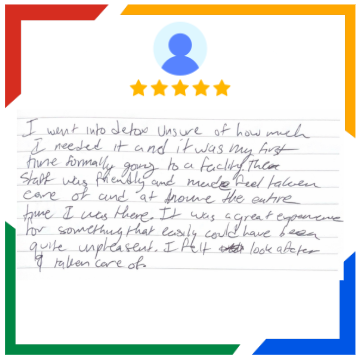 I went into detox unsure of how much
I needed it and it was my first
time formally going to a facility. The
staff was friendly and made feel taken
care of and "at home the entire
time I was there. It was a great experience
for something that easily could have been
quite unpleasent. I felt look after
& taken care of.